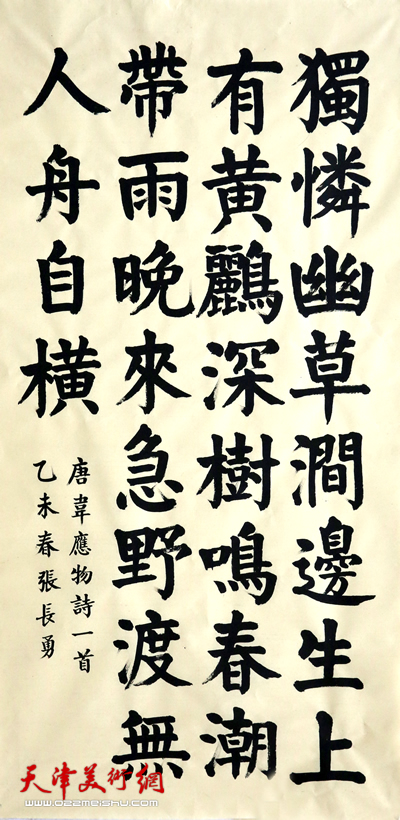 獨憐幽草澗邊生上
有黃鸝深樹鳴春潮
帶雨晚來急野渡無
人舟自橫
唐韋應物詩一首
乙未春張長勇
天津美術網
www.022meishu.com